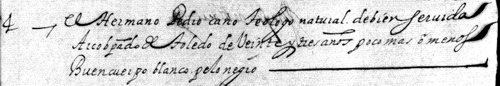 4 el Hermano Pedro cano teologo natural de bien servida
Arcobpado de Toledo de Veinte y tres años poco mas o menos
Buen cuerpo blanco pelo negro